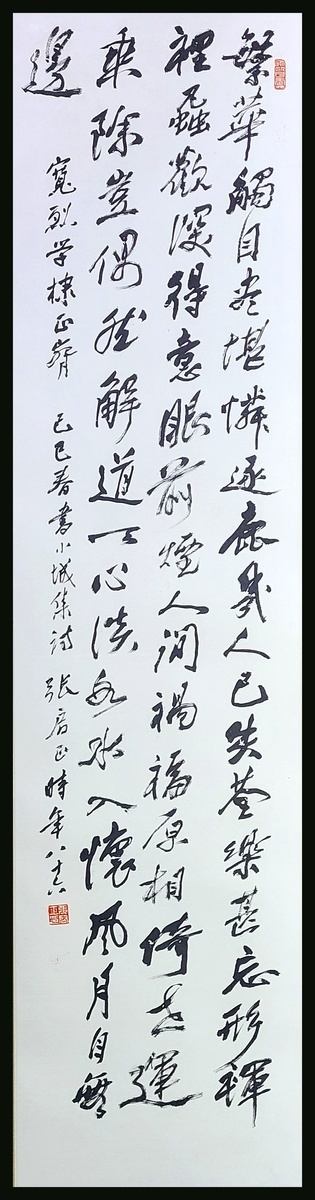 繁華觸目盡堪憐逐鹿幾人已失荃樂甚忘形褌
裡蝨歡深得意眼前煙人間禍福原相倚世運
乘除豈偶然解道一心淡水入懷風月自無
邊
寬烈学棣正 己巳春書小城集詩 張正時年八十六